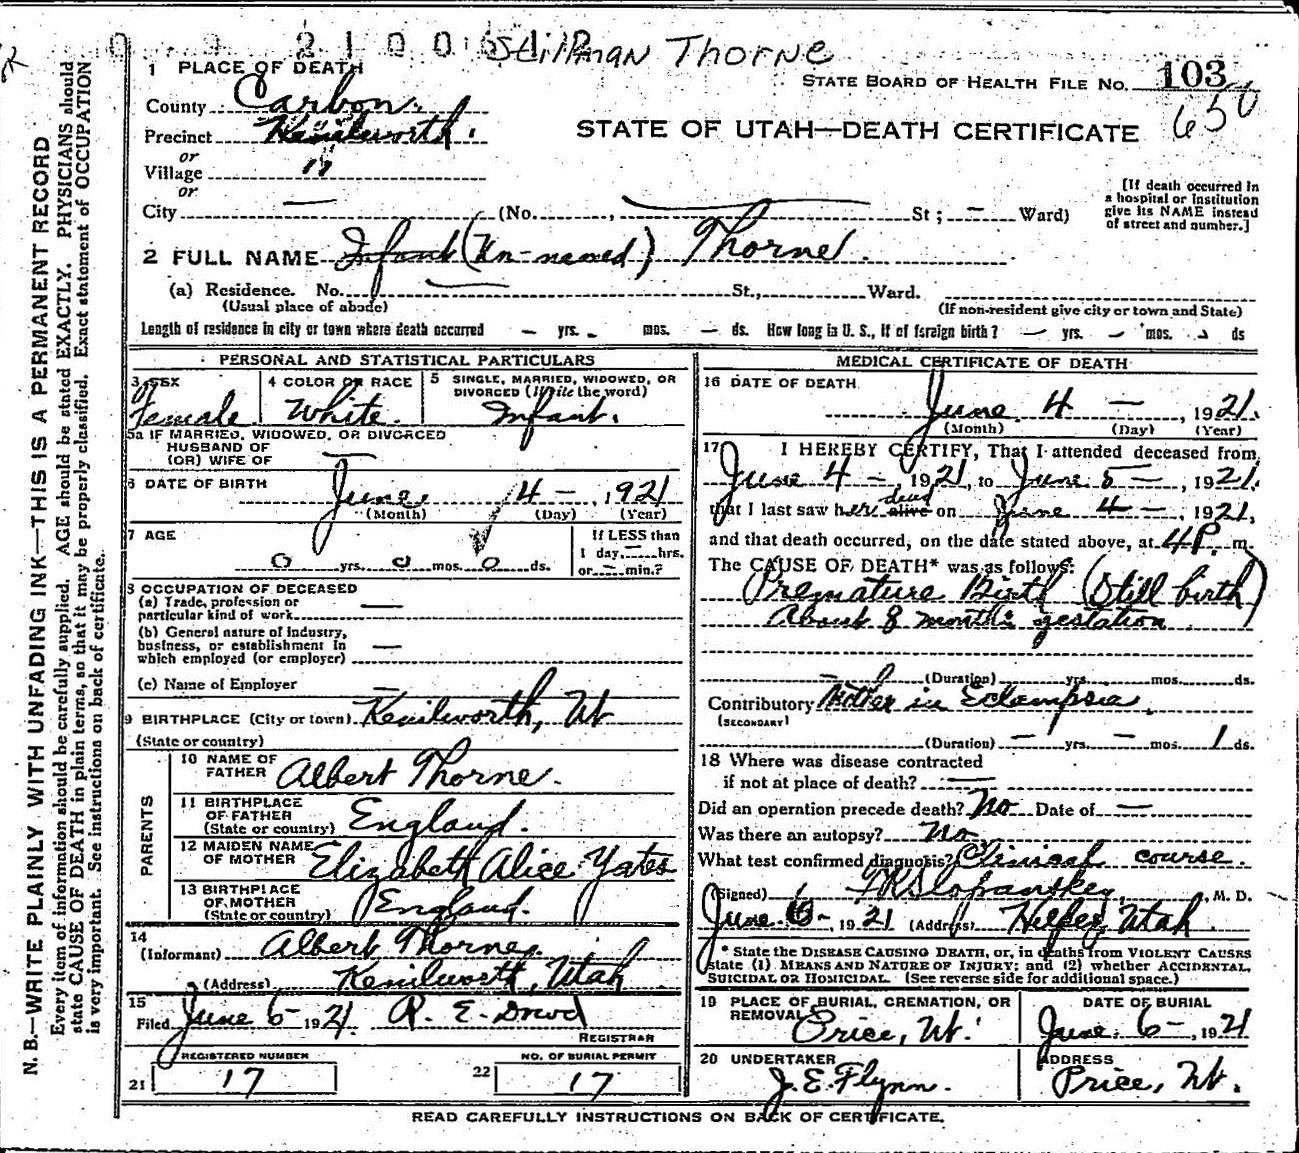 Stillman Thorne
1 PLACE OF DEATH
STATE BOARD OF HEALTH FILE NO. 103
County Carbon.
650
Precinct Kenilworth.
STATE OF UTAH—DEATH CERTIFICATE
or
Village "
or
City — (No. , St; — Ward)
[If death occurred in a hospital or institution give its NAME instead of street and number.]
2 FULL NAME Infant (Un-named) Thorne.
(a) Residence. No. — St., Ward.
(Usual place of abode)
(If non-resident give city or town and State)
Length of residence in city or town where death occurred — yrs. - mos. — ds. How long in U. S., if of foreign birth? — yrs. - mos. - ds
PERSONAL AND STATISTICAL PARTICULARS
3 SEX Female
4 COLOR OR RACE White.
5 SINGLE, MARRIED, WIDOWED, OR DIVORCED (Write the word) Infant.
5a IF MARRIED, WIDOWED, OR DIVORCED
HUSBAND OF
(OR) WIFE OF —
6 DATE OF BIRTH June, 4 — , 1921
(Month) (Day) (Year)
7 AGE
0 yrs. 0 mos. 0 ds.
If LESS than
1 day, — hrs.
or — min.?
8 OCCUPATION OF DECEASED
(a) Trade, profession or
particular kind of work —
(b) General nature of industry,
business, or establishment in
which employed (or employer) —
(c) Name of Employer —
9 BIRTHPLACE (City or town) Kenilworth, Ut
(State or country)
PARENTS
10 NAME OF FATHER Albert Thorne.
11 BIRTHPLACE OF FATHER (State or country) England.
12 MAIDEN NAME OF MOTHER Elizabeth Alice Yates
13 BIRTHPLACE OF MOTHER (State or country) England.
14
(Informant) Albert Thorne.
(Address) Kenilworth, Utah.
15
Filed June 6- 1921
REGISTRAR
REGISTERED NUMBER
21 17
NO. OF BURIAL PERMIT
22 17
MEDICAL CERTIFICATE OF DEATH
16 DATE OF DEATH
June 4 — , 1921.
(Month) (Day) (Year)
17 I HEREBY CERTIFY, That I attended deceased from
June 4 - 1921, to June 5 - , 1921.
that I last saw her alive dead on June 4 - , 1921,
and that death occurred, on the date stated above, at 4P. m.
The CAUSE OF DEATH* was as follows:
Premature Birth (Still birth)
About 8 months gestation
(Duration) yrs. mos. ds.
Contributory Mother in Eclampsia.
(SECONDARY)
(Duration) — yrs. — mos. 1 ds.
18 Where was disease contracted
if not at place of death? —
Did an operation precede death? No Date of —
Was there an autopsy? No
What test confirmed diagnosis? Clinical course.
(Signed) , M. D.
June 1921 (Address) Helper, Utah
* State the DISEASE CAUSING DEATH, or, in deaths from VIOLENT CAUSES
state (1) MEANS AND NATURE OF INJURY; and (2) whether ACCIDENTAL,
SUICIDAL OR HOMICIDAL. (See reverse side for additional space.)
19 PLACE OF BURIAL, CREMATION, OR REMOVAL Price, Ut.
DATE OF BURIAL June 6- , 1921
20 UNDERTAKER J. E. Flynn.
ADDRESS Price, Ut.
READ CAREFULLY INSTRUCTIONS ON BACK OF CERTIFICATE.
N. B.—WRITE PLAINLY WITH UNFADING INK—THIS IS A PERMANENT RECORD
Every item of information should be carefully supplied. AGE should be stated EXACTLY. PHYSICIANS should
state CAUSE OF DEATH in plain terms, so that it may be properly classified. Exact statement of OCCUPATION
is very important. See instructions on back of certificate.